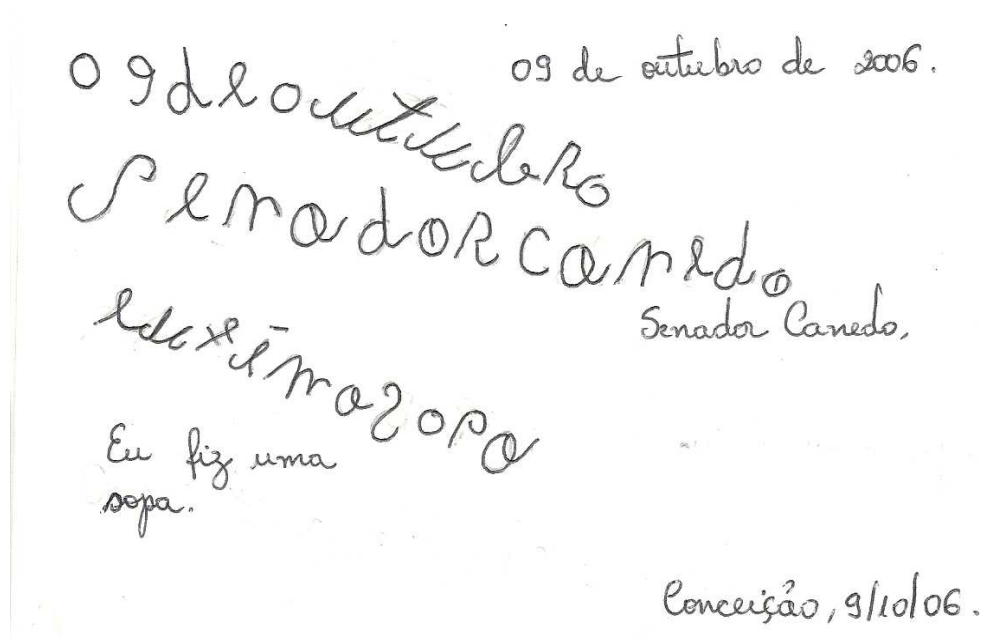 09deoutubro
09 de outubro de 2006.
SenadoRCanedo
Senador Canedo,
euxemazopa
Eu fiz uma
sopa.
Conceição, 9/10/06.